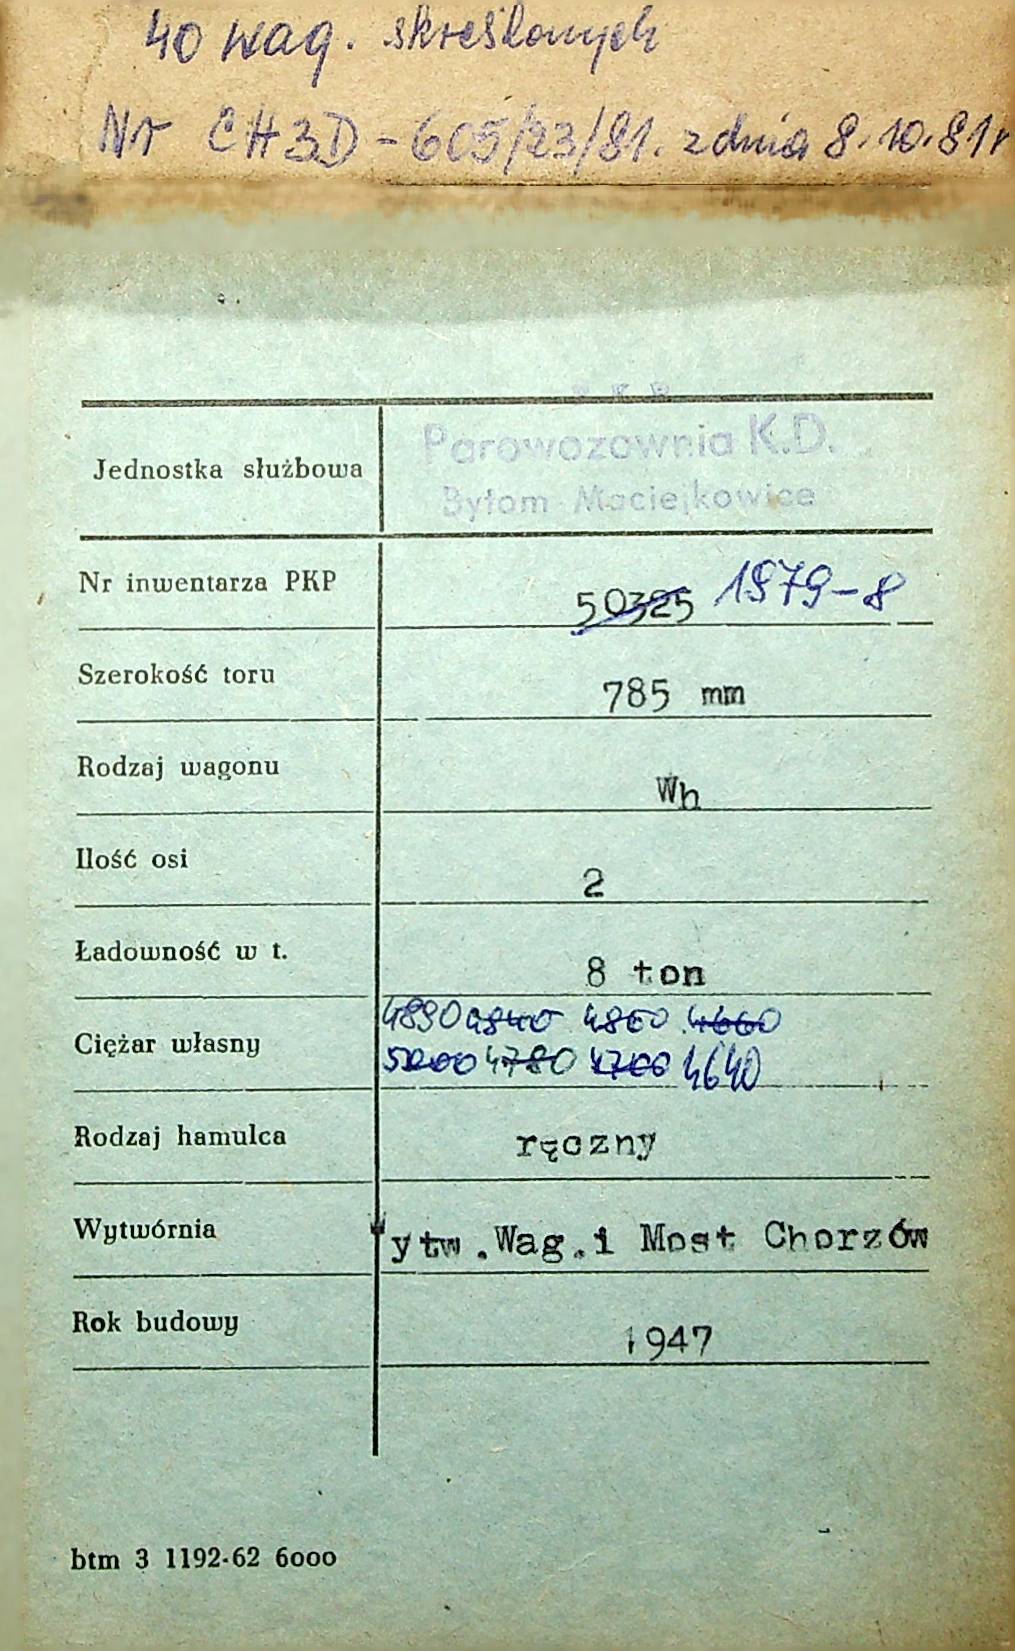 40 wag. skreślonych
Nr CH3D-605/23/81. z dnia 8.10.81r
P K P
Jednostka służbowa Parowozownia K.D.
Bytom Maciejkowice
Nr inwentarza PKP 50325 1979-8
Szerokość toru 785 mm
Rodzaj wagonu Wh
Ilość osi 2
Ładowność w t. 8 ton
4890 4840 4860 4660
Ciężar własny 5000 4780 4700 4640
Rodzaj hamulca ręczny
Wytwórnia Wytw.Wag.i Most Chorzów
Rok budowy 1947
btm 3 1192-62 6000